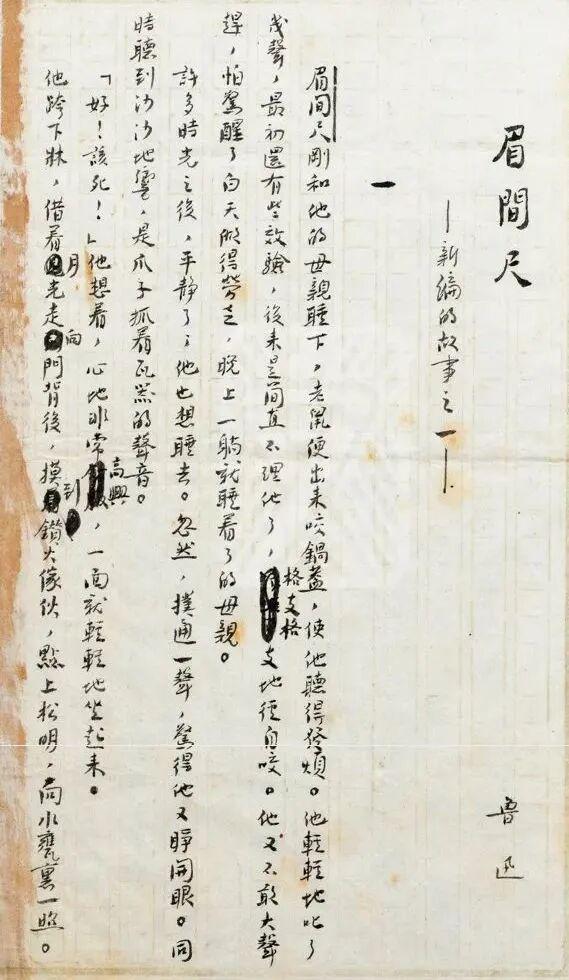 眉間尺
魯迅
—新編的故事之一—
一
眉間尺剛和他的母親睡下，老鼠便出來咬鍋蓋，使他聽得發煩。他輕輕地叱了
幾聲，最初還有些效驗，後來是簡直不理他了，格支格支地徑自咬。他又不敢大聲
趕，怕驚醒了白天做得勞乏，晚上一躺就睡着了的母親。
許多時光之後，平靜了；他也想睡去。忽然，撲通一聲，驚得他又睜開眼。同
時聽到沙沙地響，是爪子抓着瓦器的聲音。
「好！該死！」他想着，心地非常高興，一面就輕輕地坐起來。
他跨下牀，借着月光走向門背後，摸到鑽火傢伙，點上松明，向水甕裏一照。